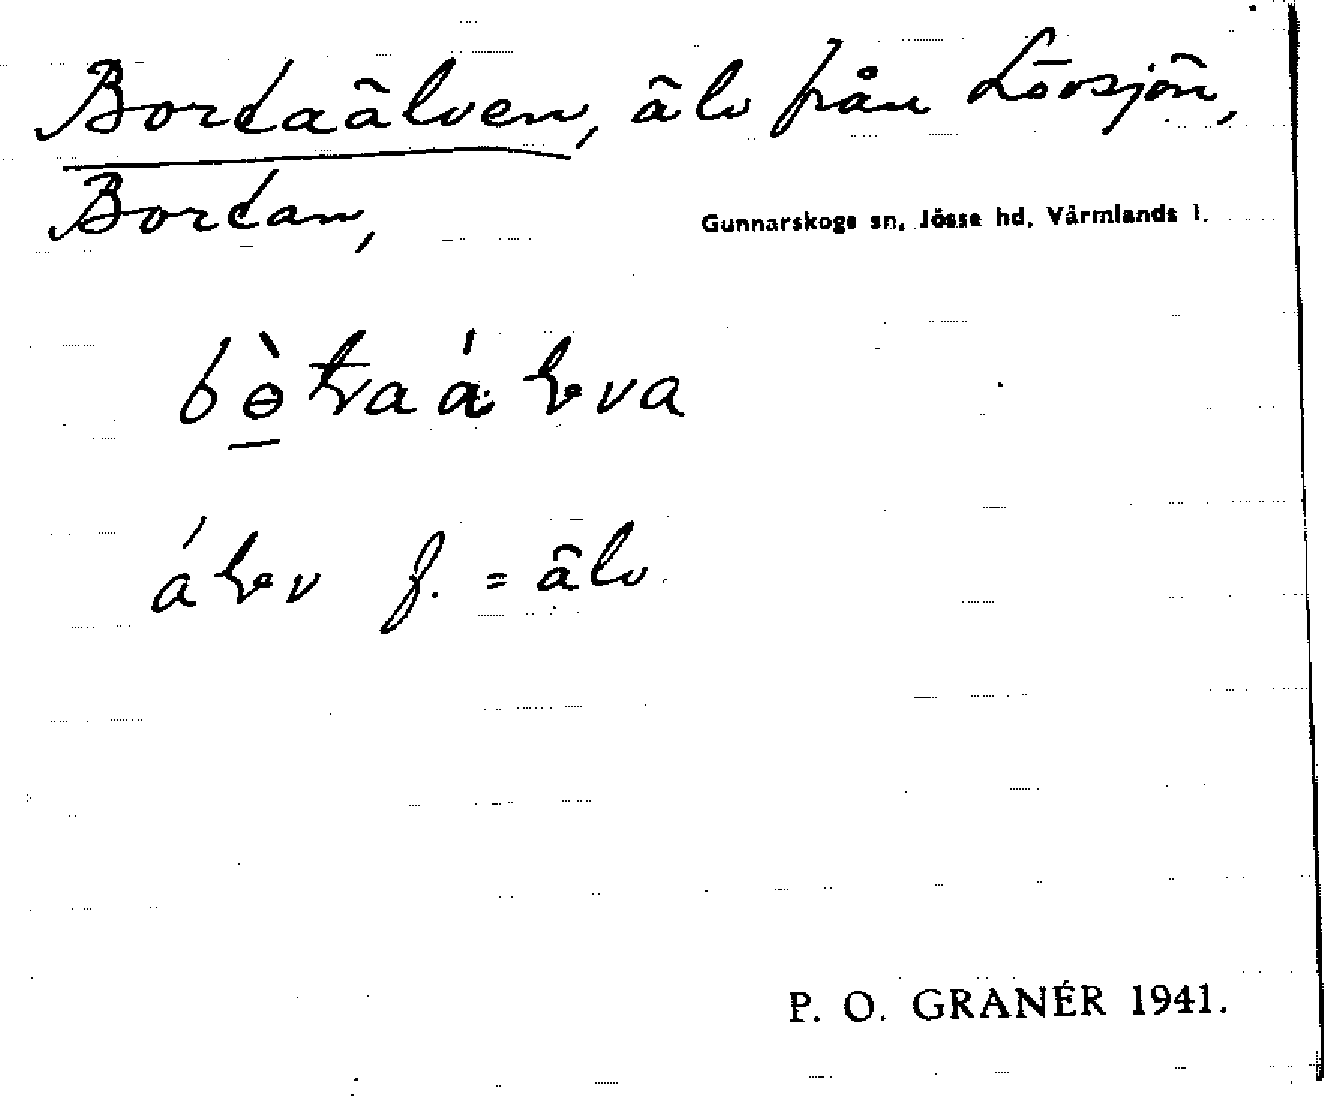 Bordaälven, älv från Lövsjön,
Bordan,
Gunnarskogs sn, Jösse hd, Värmlands l.
f. = älv
P. O. GRANÉR 1941.